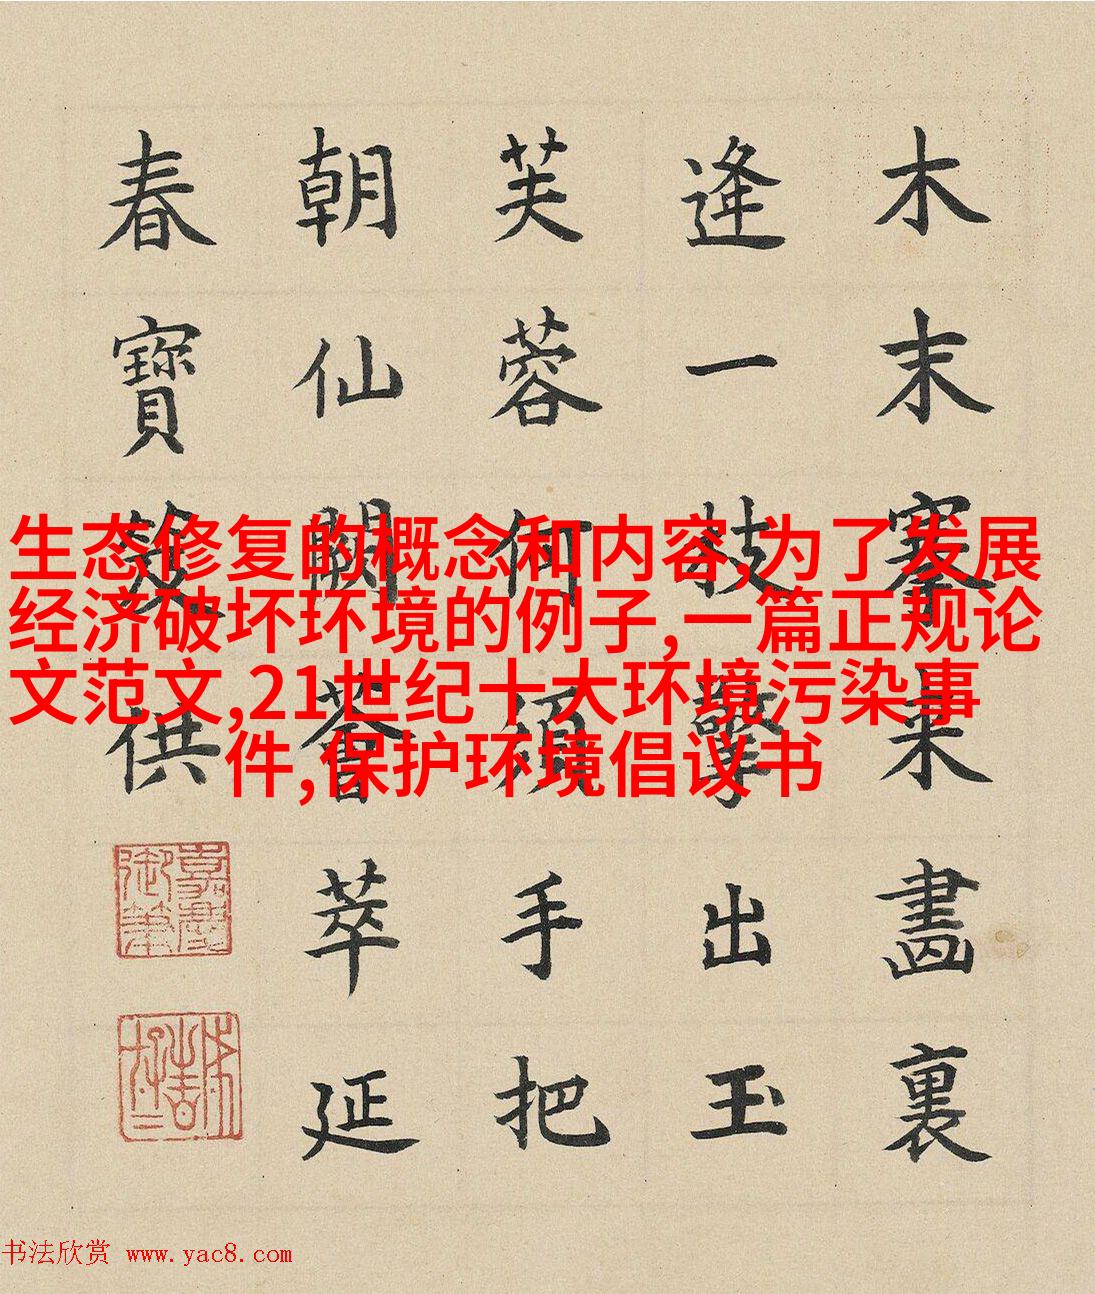 木末搴来畫裏
逢一枝擎出玉
芙蓉何須手把
朝仙闕薈萃延
春寶笈供
嘉慶御筆
生态修复的概念和内容,为了发展
经济破坏环境的例子,一篇正规论
文范文,21世纪十大环境污染事
件,保护环境倡议书
书法欣赏 www.yac8.com